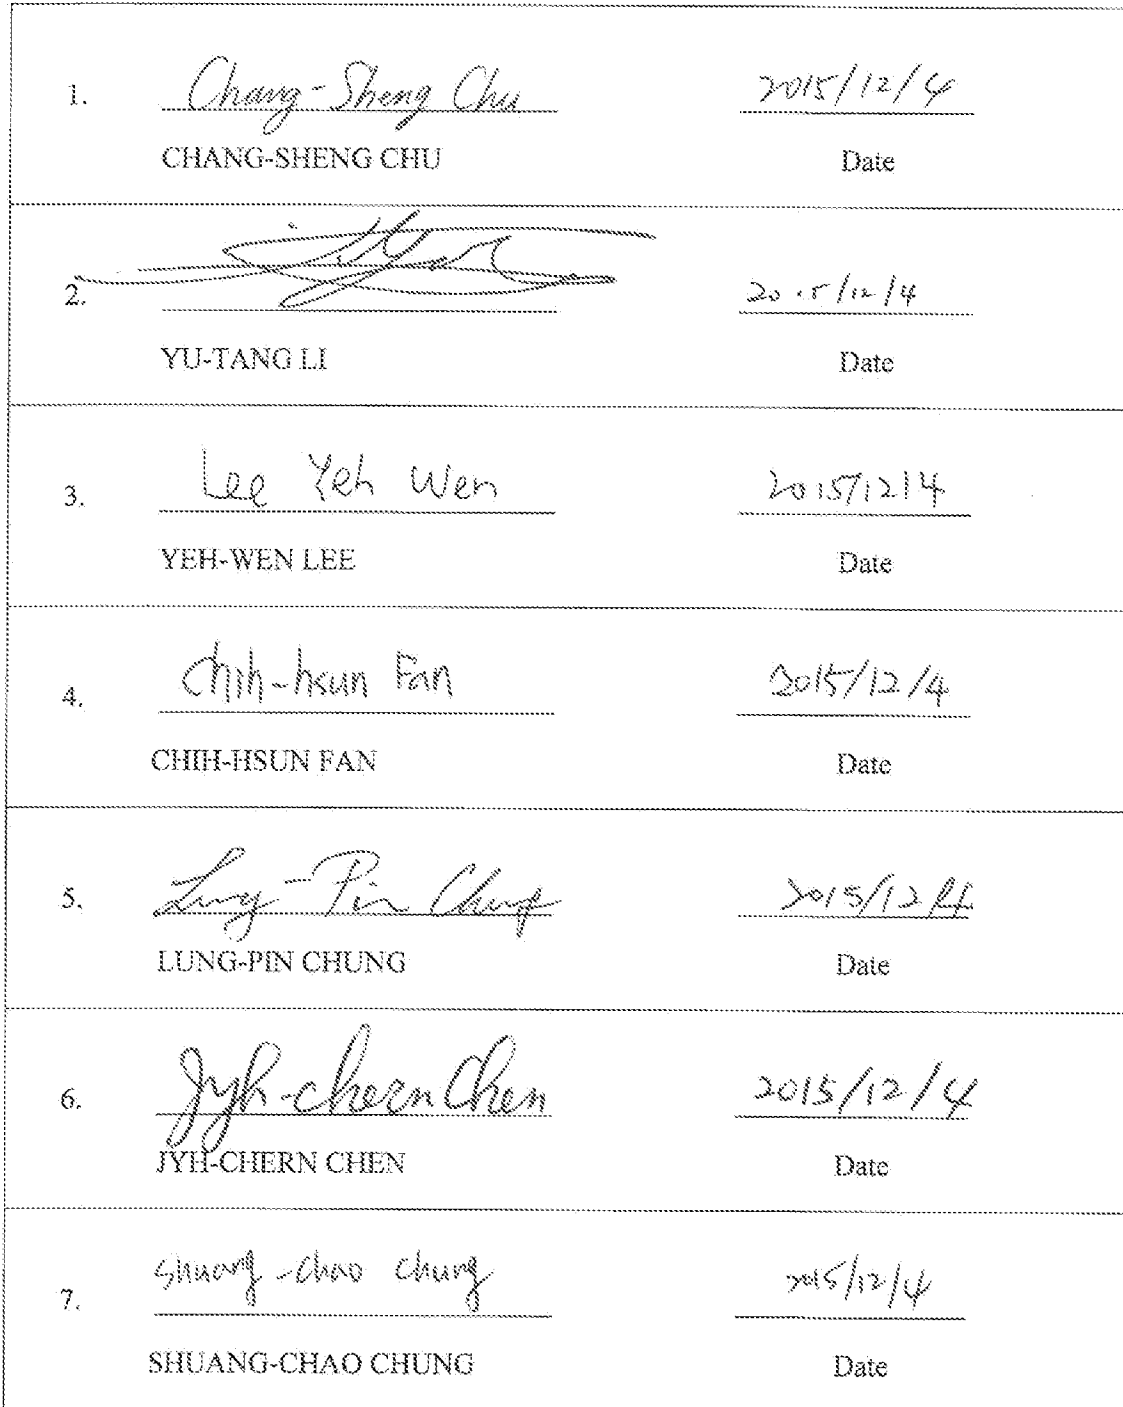 1. Chang-Sheng Chu 2015/12/4
CHANG-SHENG CHU Date
2. 2015/12/4
YU-TANG LI Date
3. Lee Yeh Wen 2015/12/4
YEH-WEN LEE Date
4. Chih-hsun Fan 2015/12/4
CHIH-HSUN FAN Date
5. Lung-Pin Chung 2015/12/4
LUNG-PIN CHUNG Date
6. Jyh-chern Chen 2015/12/4
JYH-CHERN CHEN Date
7. Shuang-chao chung 2015/12/4
SHUANG-CHAO CHUNG Date